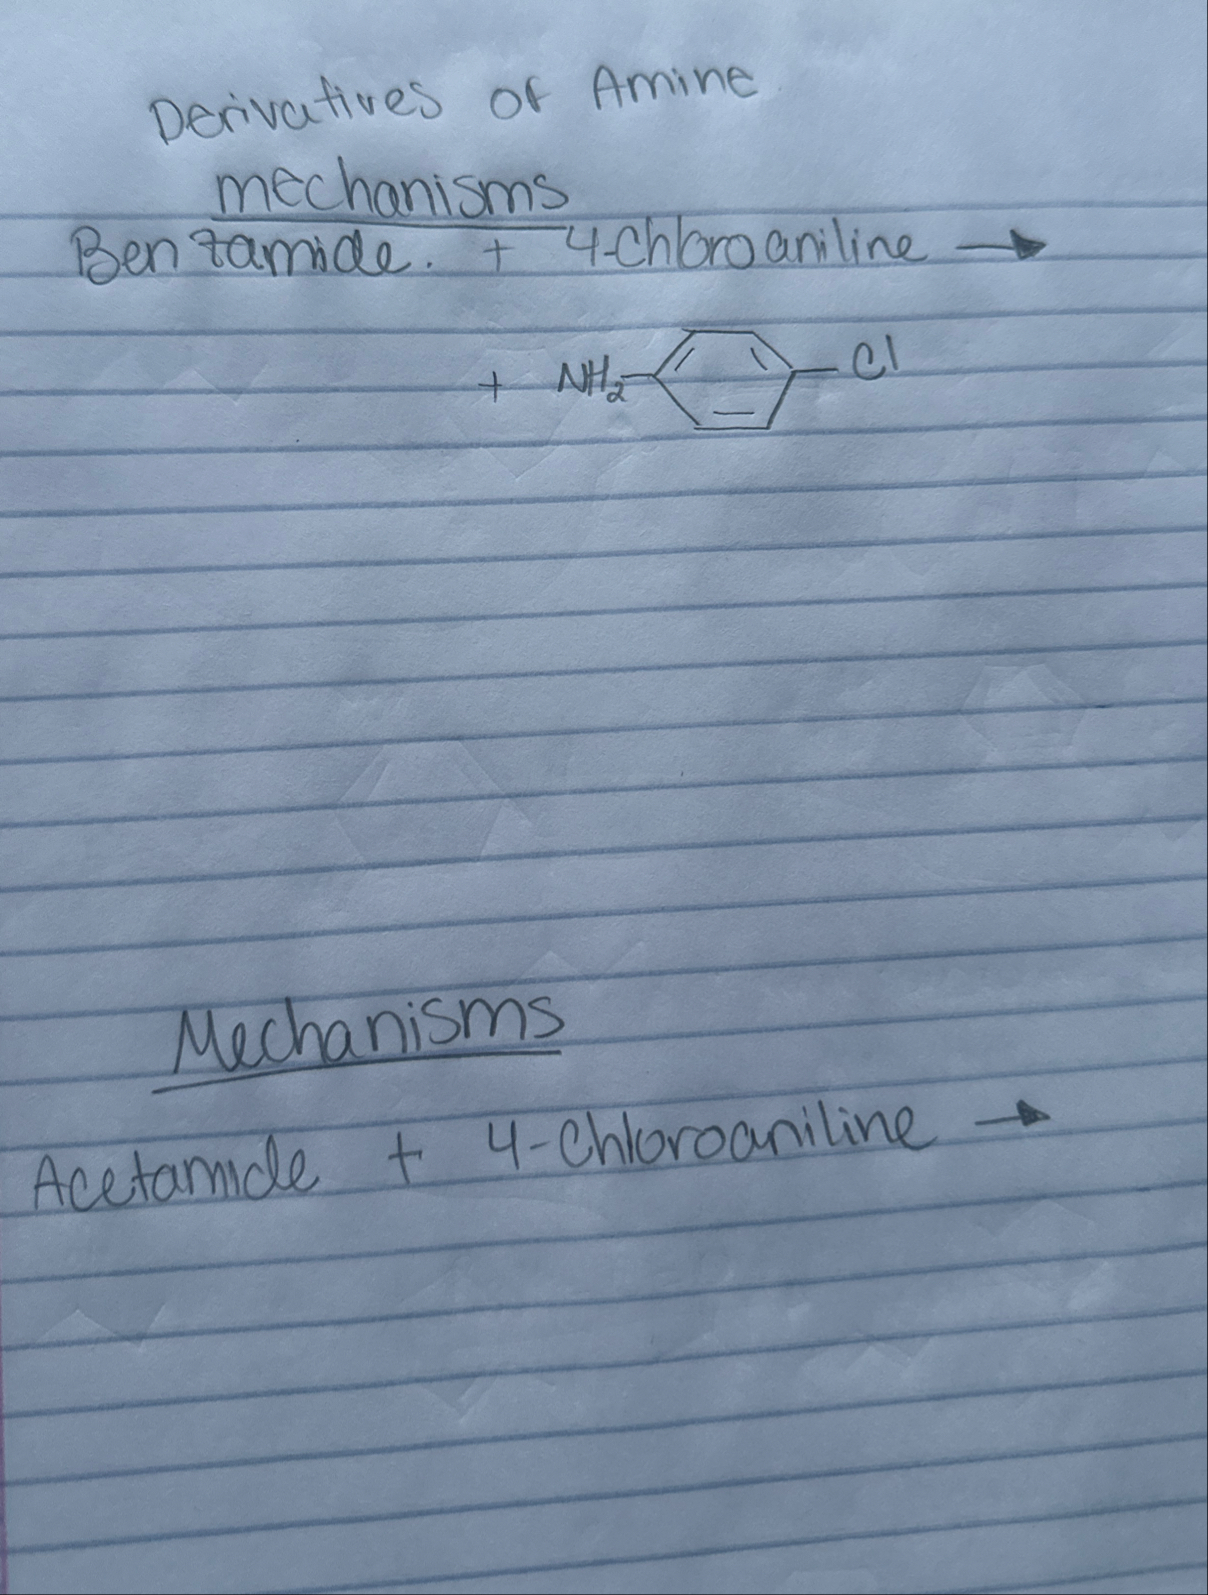 Derivatives of Amine
mechanisms
Benzamide. + 4-Chloroaniline →
+ NH₂ Cl
Mechanisms
Acetamide + 4-Chloroaniline →